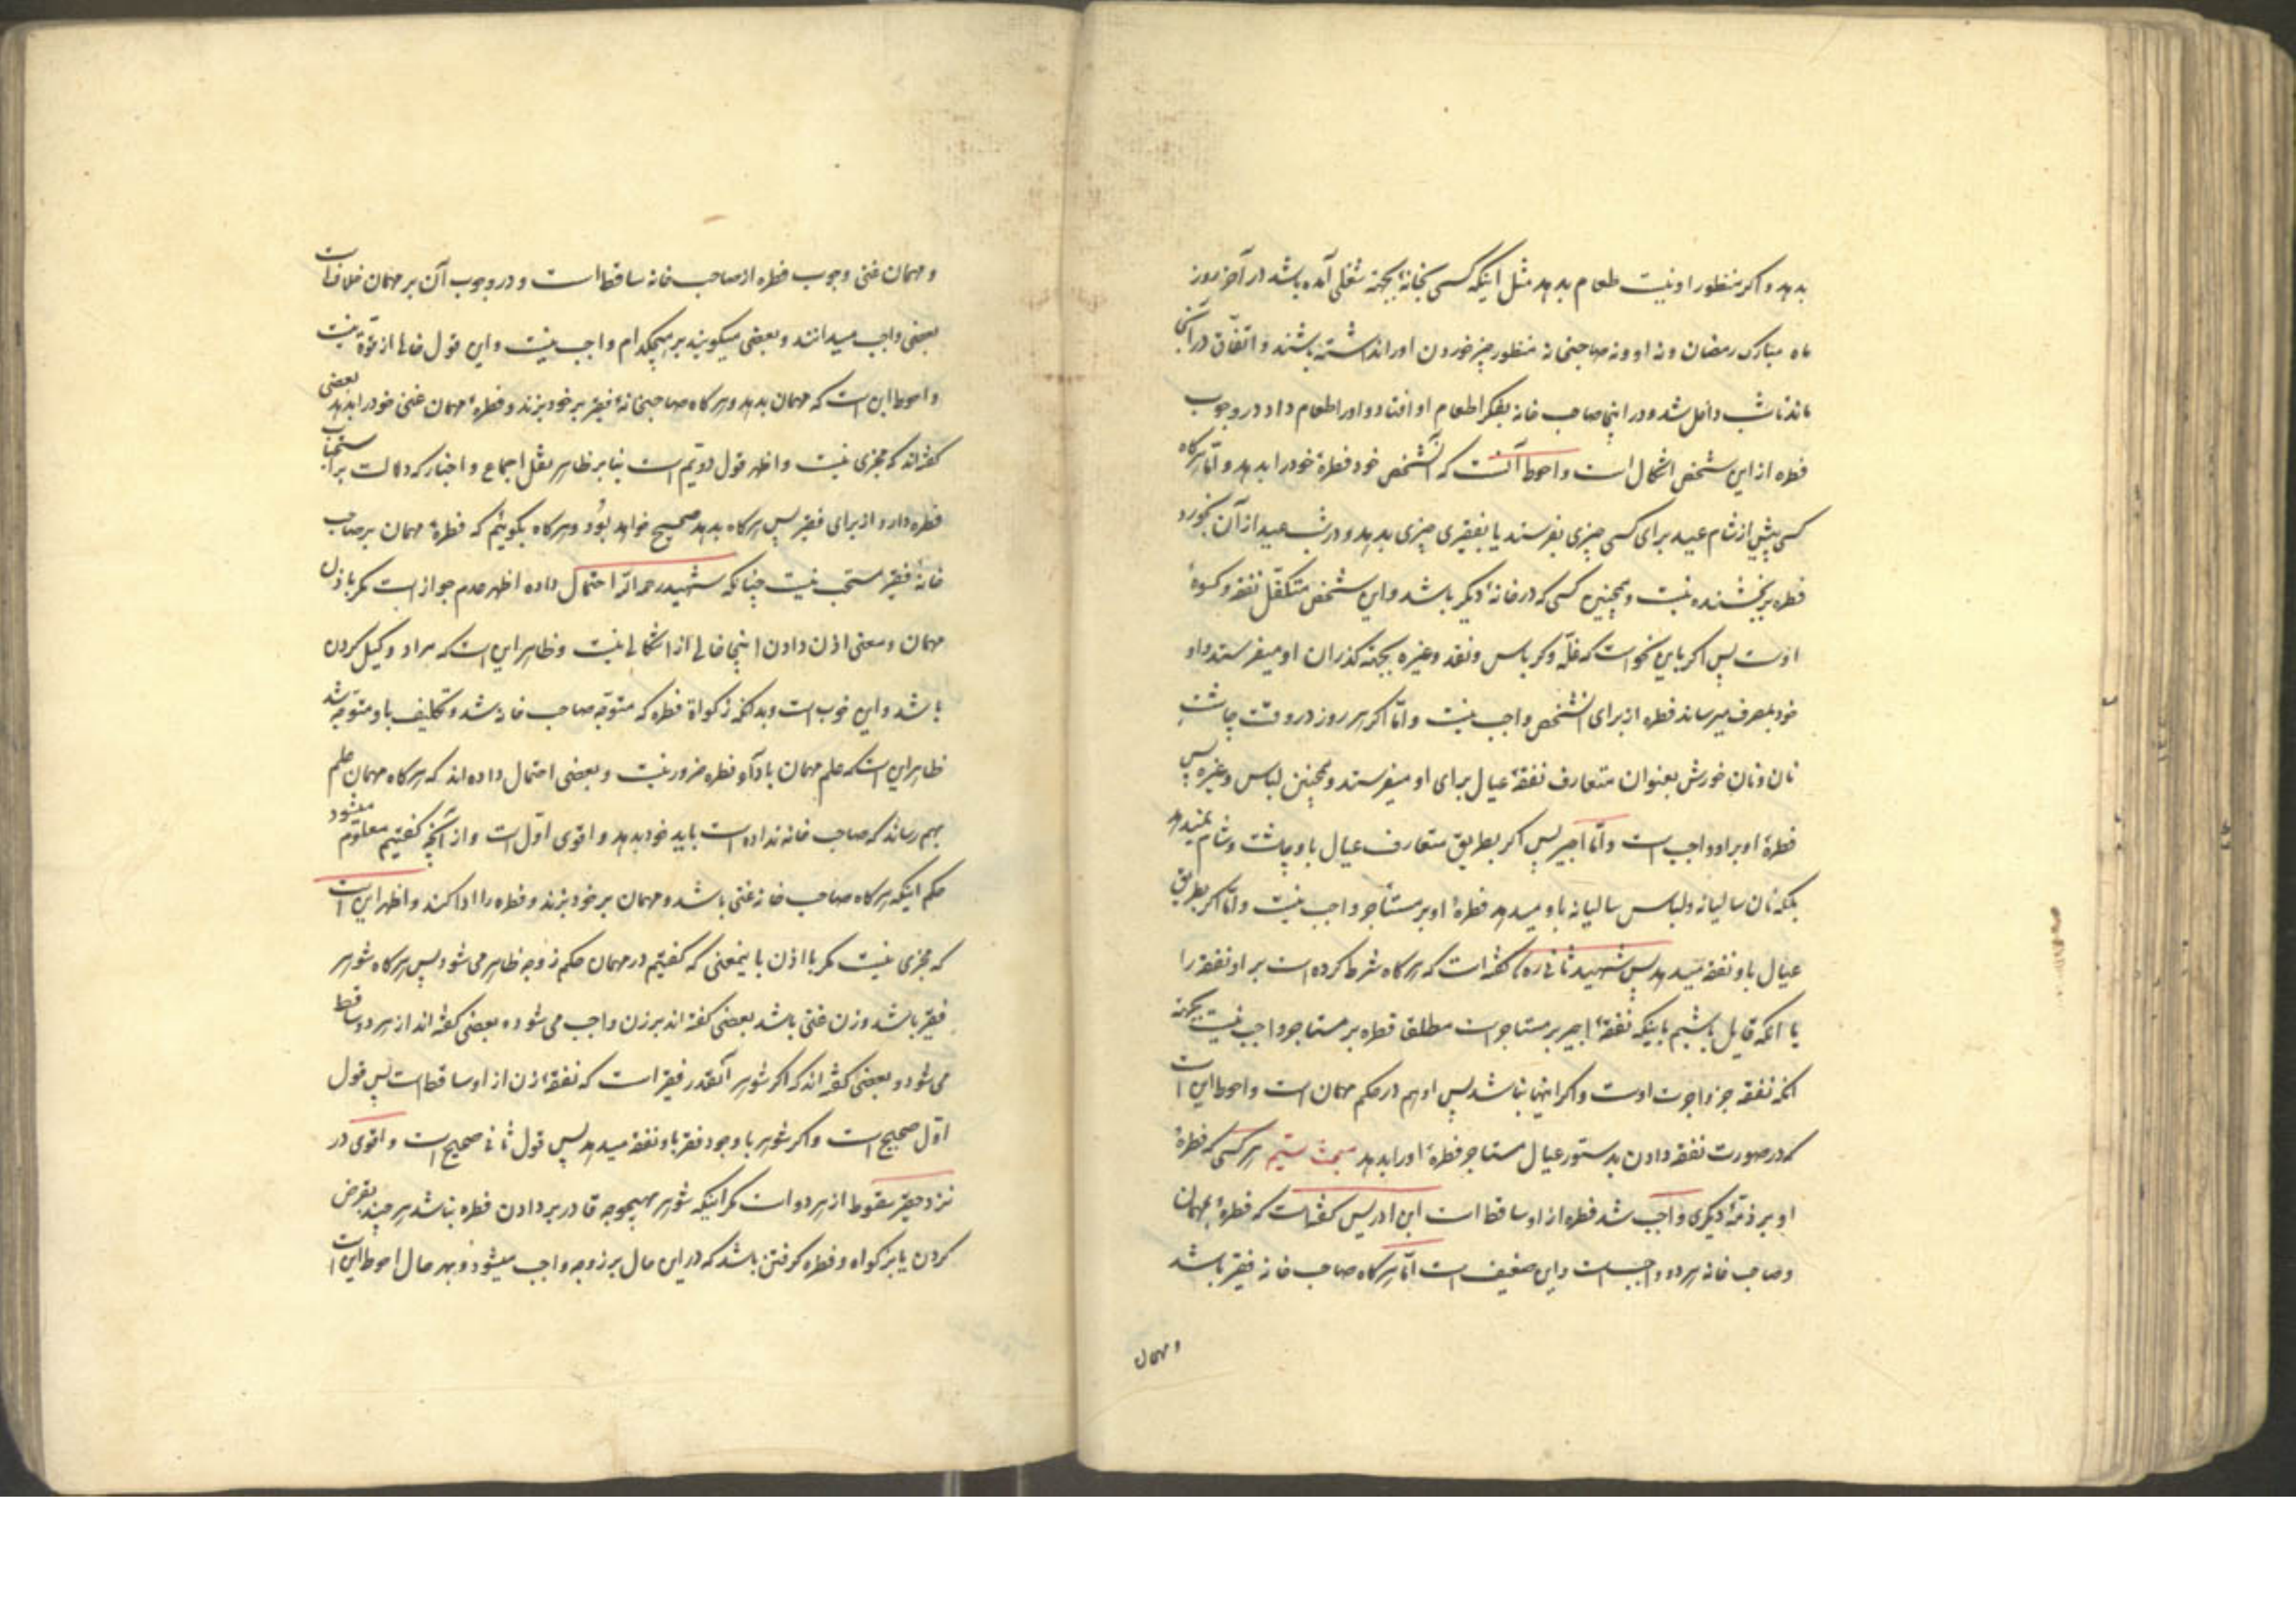 بدهد و اکر منظور او نیست طعام بدهد مثل اینکه کسی بخانهٔ بجهة شغلی آمده باشد در آخر روز
ماه مبارک رمضان و نه او و نه صاحبخانه منظور چیز خوردن او را نداشته باشند و اتفاق در آنجا
ماند تا شب داخل شد و در اینجا صاحب خانه بفکر اطعام او افتاد و او را طعام داد در وجوب
فطره از این شخص اشکال است و احوط آنست که آنشخص خود فطرهٔ خود را بدهد و امّا هرکاه
کسی پیش از شام عید برای کسی چیزی بفرستد یا بفقیری چیزی بدهد و در شب عید از آن بخورد
فطره بر بخشنده نیست و همچنین کسی که در خانهٔ دیکر باشد و این شخص متکفّل نفقه و کسوهٔ
اوست پس اکر باین نحو است که غلّه و کرباس و نقد و غیره بجهة کذران او میفرستد و او
خود بمصرف میرساند فطره از برای آنشخص واجب نیست و امّا اکر هر روز در وقت چاشت
نان و نان خورش بعنوان متعارف نفقهٔ عیال برای او میفرستد و همچنین لباس و غیره پس
فطرهٔ او بر او واجب است و امّا اجیر پس اکر بطریق متعارف عیال باو چاشت و شام نمیدهد
بلکه نان سالیانه و لباس سالیانه باو میدهد فطرهٔ او بر مستأجر واجب نیست و امّا اکر بطریق
عیال باو نفقه میدهد پس شهید ثانی ره گفته است که هرکاه شرط کرده است بر او نفقه را
یا آنکه قایل باشیم باینکه نفقهٔ اجیر بر مستاجر است مطلقا فطره بر مستاجر واجب نیست بجهة
آنکه نفقه جزو اجرت اوست و اکر اینها نباشد پس او هم در حکم مهمان است و احوط این است
که در صورت نفقه دادن بدستور عیال مستاجر فطرهٔ او را بدهد مبحث ستیم هر کسی که فطرهٔ
او بر ذمّهٔ دیکری واجب شد فطره از او ساقط است ابن ادریس کفته است که فطرهٔ مهمان
و صاحب خانه هر دو واجب است و این ضعیف است امّا هرکاه صاحب خانه فقیر باشد
و مهمان
و مهمان غنی وجوب فطره از صاحب خانه ساقط است و در وجوب آن بر مهمان خلاف است
بعضی واجب میدانند و بعضی میکویند بر هیچکدام واجب نیست و این قول خالی از قوّة نیست
و احوط این است که مهمان بدهد و هرکاه صاحبخانهٔ فقیر بر خود بزند و فطرهٔ مهمان غنی خود را بدهد بعضی
کفته‌اند که مجزی نیست و اظهر قول دویّم است بنا بر ظاهر نقل اجماع و اخبار که دلالت بر استحباب
فطره دارد از برای فقیر پس هرکاه بدهد صحیح خواهد بود و هرکاه بکوئیم که فطرهٔ مهمان بر صاحب
خانهٔ فقیر مستحب نیست چنانکه شهید رحمه الله احتمال داده اظهر عدم جواز است مکر باذن
مهمان و معنی اذن دادن اینجا خالی از اشکالی نیست و ظاهر این است که مراد وکیل کردن
باشد و این خوب است و بدانکه زکواة فطره که متوجّه صاحب خانه شد و تکلیف باو متوجّه شد
ظاهر این است که علم مهمان باداء فطره ضرور نیست و بعضی احتمال داده‌اند که هرکاه مهمان علم
بهم رساند که صاحب خانه نداده است باید خود بدهد و اقوی اوّل است و از آنچه کفتیم معلوم میشود
حکم اینکه هرکاه صاحب خانه غنی باشد و مهمان بر خود بزند و فطره را ادا کند و اظهر این است
که مجزی نیست مکر با اذن بانمعنی که کفتیم در مهمان حکم زوجه ظاهر می شود پس هرکاه شوهر
فقیر باشد و زن غنی باشد بعضی کفته اند بر زن واجب می شود و بعضی کفته اند از هر دو ساقط
می شود و بعضی کفته اند که اکر شوهر آنقدر فقیر است که نفقهٔ زن از او ساقط است پس قول
اوّل صحیح است و اکر شوهر با وجود فقر باو نفقه میدهد پس قول ثانی صحیح است و اقوی در
نزد حقیر سقوط از هر دو است مکر اینکه شوهر بهیچوجه قادر بر دادن فطره نباشد هر چند بقرض
کردن یا بزکواه و فطره کرفتن باشد که در این حال بر زوجه واجب میشود و بهر حال احوط این است